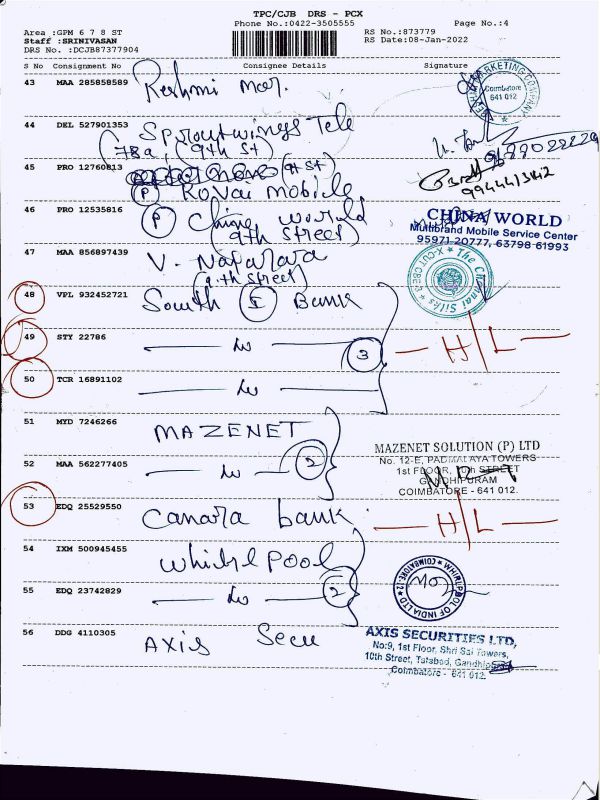 TPC/CJB DRS - PCX
Phone No.:0422-3505555
Page No.:4
Area :GPM 6 7 8 ST
Staff :SRINIVASAN
DRS No. :DCJB87377904
RS No.:873779
RS Date:08-Jan-2022
S No Consignment No Consignee Details Signature
43 MAA 285858589 Reshmi
MARKETING COMPANY
Coimbatore
641 012
44 DEL 527901353 Sproutwings Tele
78a, (9th St)
45 PRO 12760813 (9th St)
P Kovai mobile
9944413142
46 PRO 12535816 P China world
(9th Street)
CHINA WORLD
Multibrand Mobile Service Center
95971 20777, 63798 61993
47 MAA 856897439 V.
(9th Street)
The Chennai Silks
48 VPL 932452721 South I Bank
49 STY 22786 do 3 H/L
50 TCR 16891102 do
51 MYD 7246266 MAZENET
MAZENET SOLUTION (P) LTD
No. 12-E, PADMALAYA TOWERS
1st FLOOR, 10th STREET
GANDHIPURAM
COIMBATORE - 641 012.
52 MAA 562277405 do 2
53 EDQ 25529550 Canara bank H/L
54 IXM 500945455 Whirlpool
WHIRLPOOL OF INDIA LTD
COIMBATORE-12
55 EDQ 23742829 do 2
56 DDG 4110305 AXIS Secu
AXIS SECURITIES LTD,
No:9, 1st Floor, Shri Sai Towers,
10th Street, Tatabad, Gandhipuram
Coimbatore - 641 012.